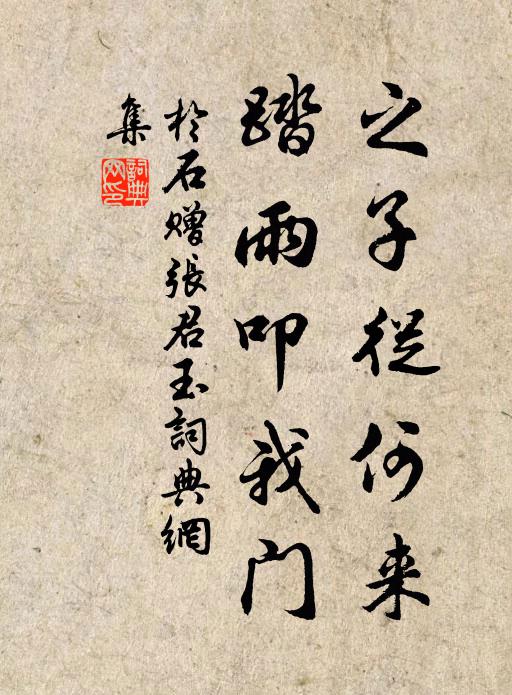 之子從何来
踏雨叩我门
於石贈張君玉詞典網
集
詞典網印